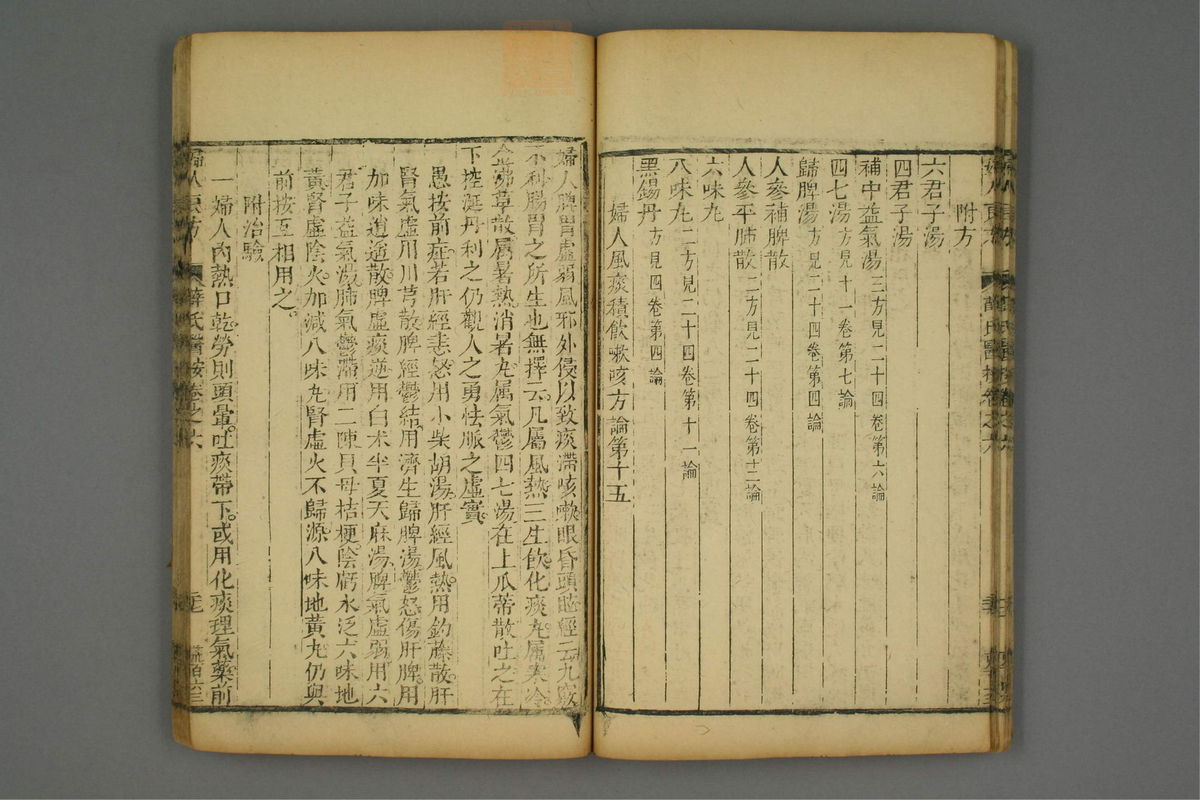 附方
六君子湯
四君子湯
補中益氣湯 三方見二十四卷第六論
四七湯 方見十一卷第七論
歸脾湯 方見二十四卷第四論
人參補脾散
人參平肺散 二方見二十四卷第十二論
六味丸
八味丸 二方見二十四卷第十一論
黑錫丹 方見四卷第四論
婦人風痰積飲嗽咳方論第十五
婦人脾胃虛弱風邪外侵以致痰滯咳嗽眼昏頭眩經云九竅
不利腸胃之所生也無擇云凡屬風熱三生飲化痰丸屬寒冷
沸草散屬暑熱消暑丸屬氣鬱四七湯在上瓜蒂散吐之在
下控涎丹利之仍觀人之勇怯脈之虛實
愚按前症若肝經恚怒用小柴胡湯肝經風熱用鈎藤散肝
腎氣虛用川芎散脾經鬱結用濟生歸脾湯鬱怒傷肝脾用
加味逍遥散脾虛痰逆用白朮半夏天麻湯脾氣虛弱用六
君子益氣湯肺氣鬱滯用二陳貝母桔梗陰虧水泛六味地
黃腎虛陰火加減八味丸腎虛火不歸源八味地黃丸仍與
前按互相用之
附治驗
一婦人內熱口乾勞則頭暈吐痰帶下或用化痰理氣藥前
婦人良方 薛氏醫按卷之六